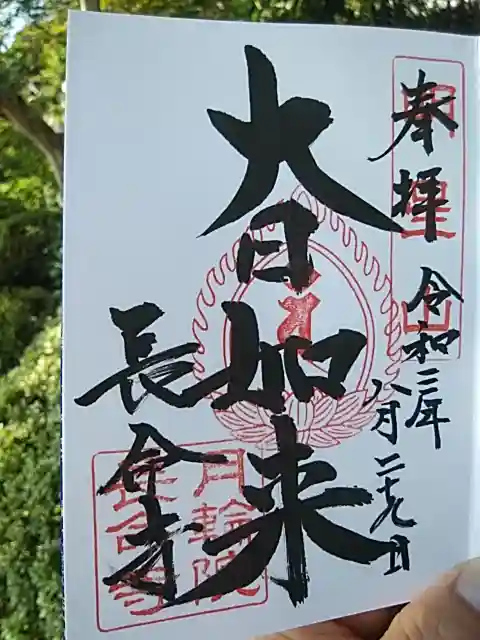 奉拝
令和三年
八月二十九日
大日如来
長命寺
月輪院
長命寺